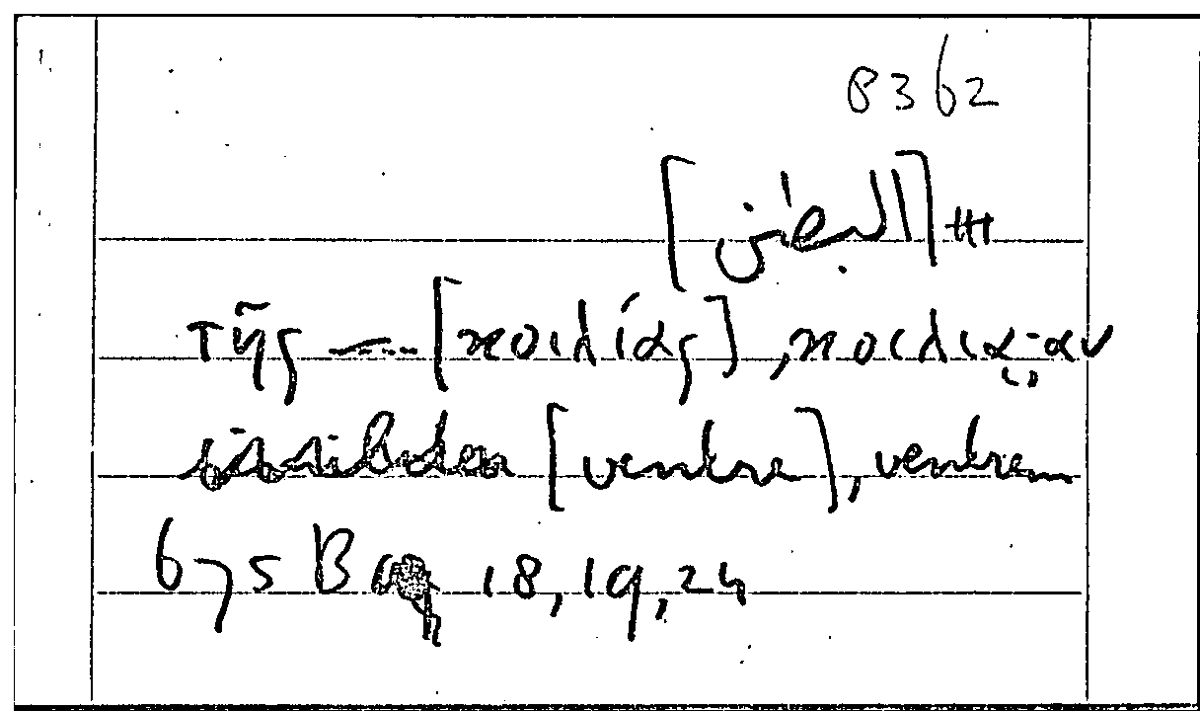 8362
[البطن] ###
τῆς — [κοιλίας], κοιλια-αν
[ventre], ventrem
675 B 18, 19, 24